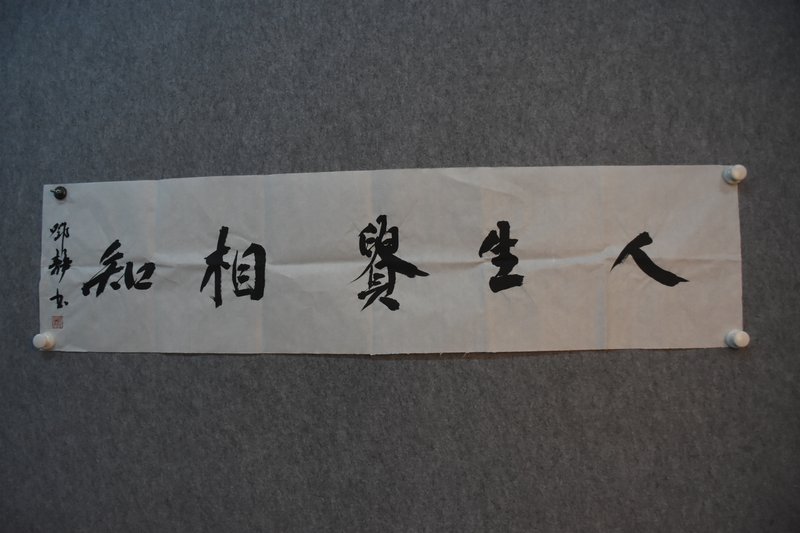 人生貴相知
静书